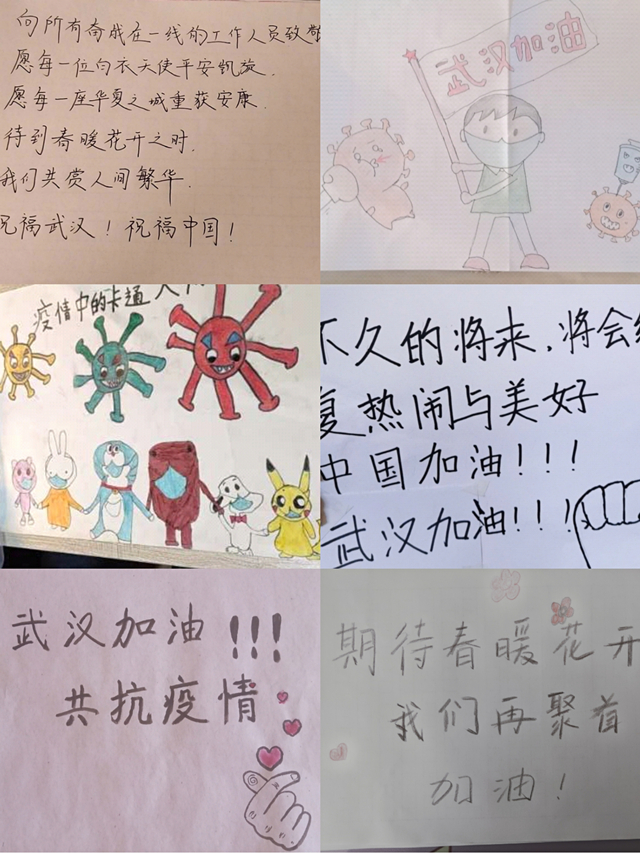 向所有奋战在一线的工作人员致敬
愿每一位白衣天使平安凯旋.
愿每一座华夏之城重获安康.
待到春暖花开之时.
我们共赏人间繁华.
祝福武汉！祝福中国！
武汉加油
疫情中的卡通
不久的将来,将会
复热闹与美好
中国加油!!!
武汉加油!!!
武汉加油!!!
共抗疫情
期待春暖花开
我们再聚着
加油!